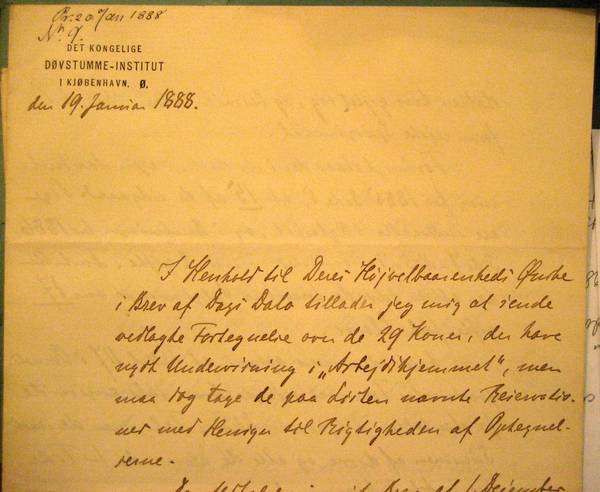 Pr. 20 Jan 1888
Nr. 9.
DET KONGELIGE
DØVSTUMME-INSTITUT
I KJØBENHAVN, Ø.
den 19. Januar 1888.
I Henhold til Deres Højvelbaarenheds Ønske
i Brev af Dags Dato tillader jeg mig at sende
vedlagte Fortegnelse over de 29 Koner, der have
nydt Undervisning i „Arbejdshjemmet", men
maa dog tage de paa Listen nævnte Reservatio-
ner med Hensyn til Rigtigheden af Optegnel-
serne.
i Brev af 1 December